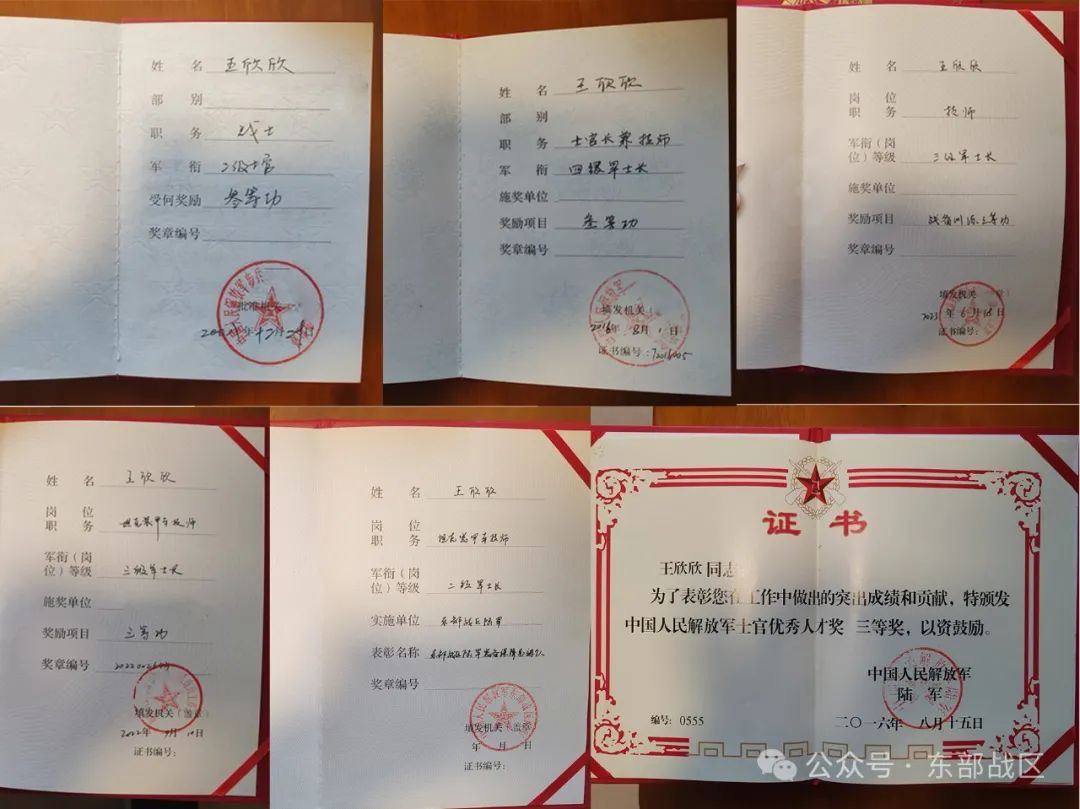 姓 名 王欣欣
部 别
职 务 战士
军 衔 二级士官
受何奖励 叁等功
奖章编号
批准机关
姓 名 王欣欣
部 别
职 务 士官长兼技师
军 衔 四级军士长
施奖单位
奖励项目 叁等功
奖章编号
填发机关
2016年 8月 1日
证书编号:
姓 名 王欣欣
岗 位
职 务 技师
军衔(岗
位)等级 三级军士长
施奖单位
奖励项目 战备训练三等功
奖章编号
填发机关
2023年 6月 18日
证书编号:
姓 名 王欣欣
岗 位
职 务 坦克装甲车技师
军衔(岗
位)等级 三级军士长
施奖单位
奖励项目 三等功
奖章编号
填发机关(盖章)
2022年 月 10日
证书编号:
姓 名 王欣欣
岗 位
职 务 坦克装甲车技师
军衔(岗
位)等级 二级军士长
实施单位 东部战区陆军
表彰名称 东部战区陆军装备保障
奖章编号
填发机关(盖章)
年 月 日
证书编号:
证书
王欣欣 同志
为了表彰您在工作中做出的突出成绩和贡献,特颁发
中国人民解放军士官优秀人才奖 三等奖,以资鼓励。
中国人民解放军
陆 军
编号: 0555
二〇一六年 八月十五日
公众号 · 东部战区